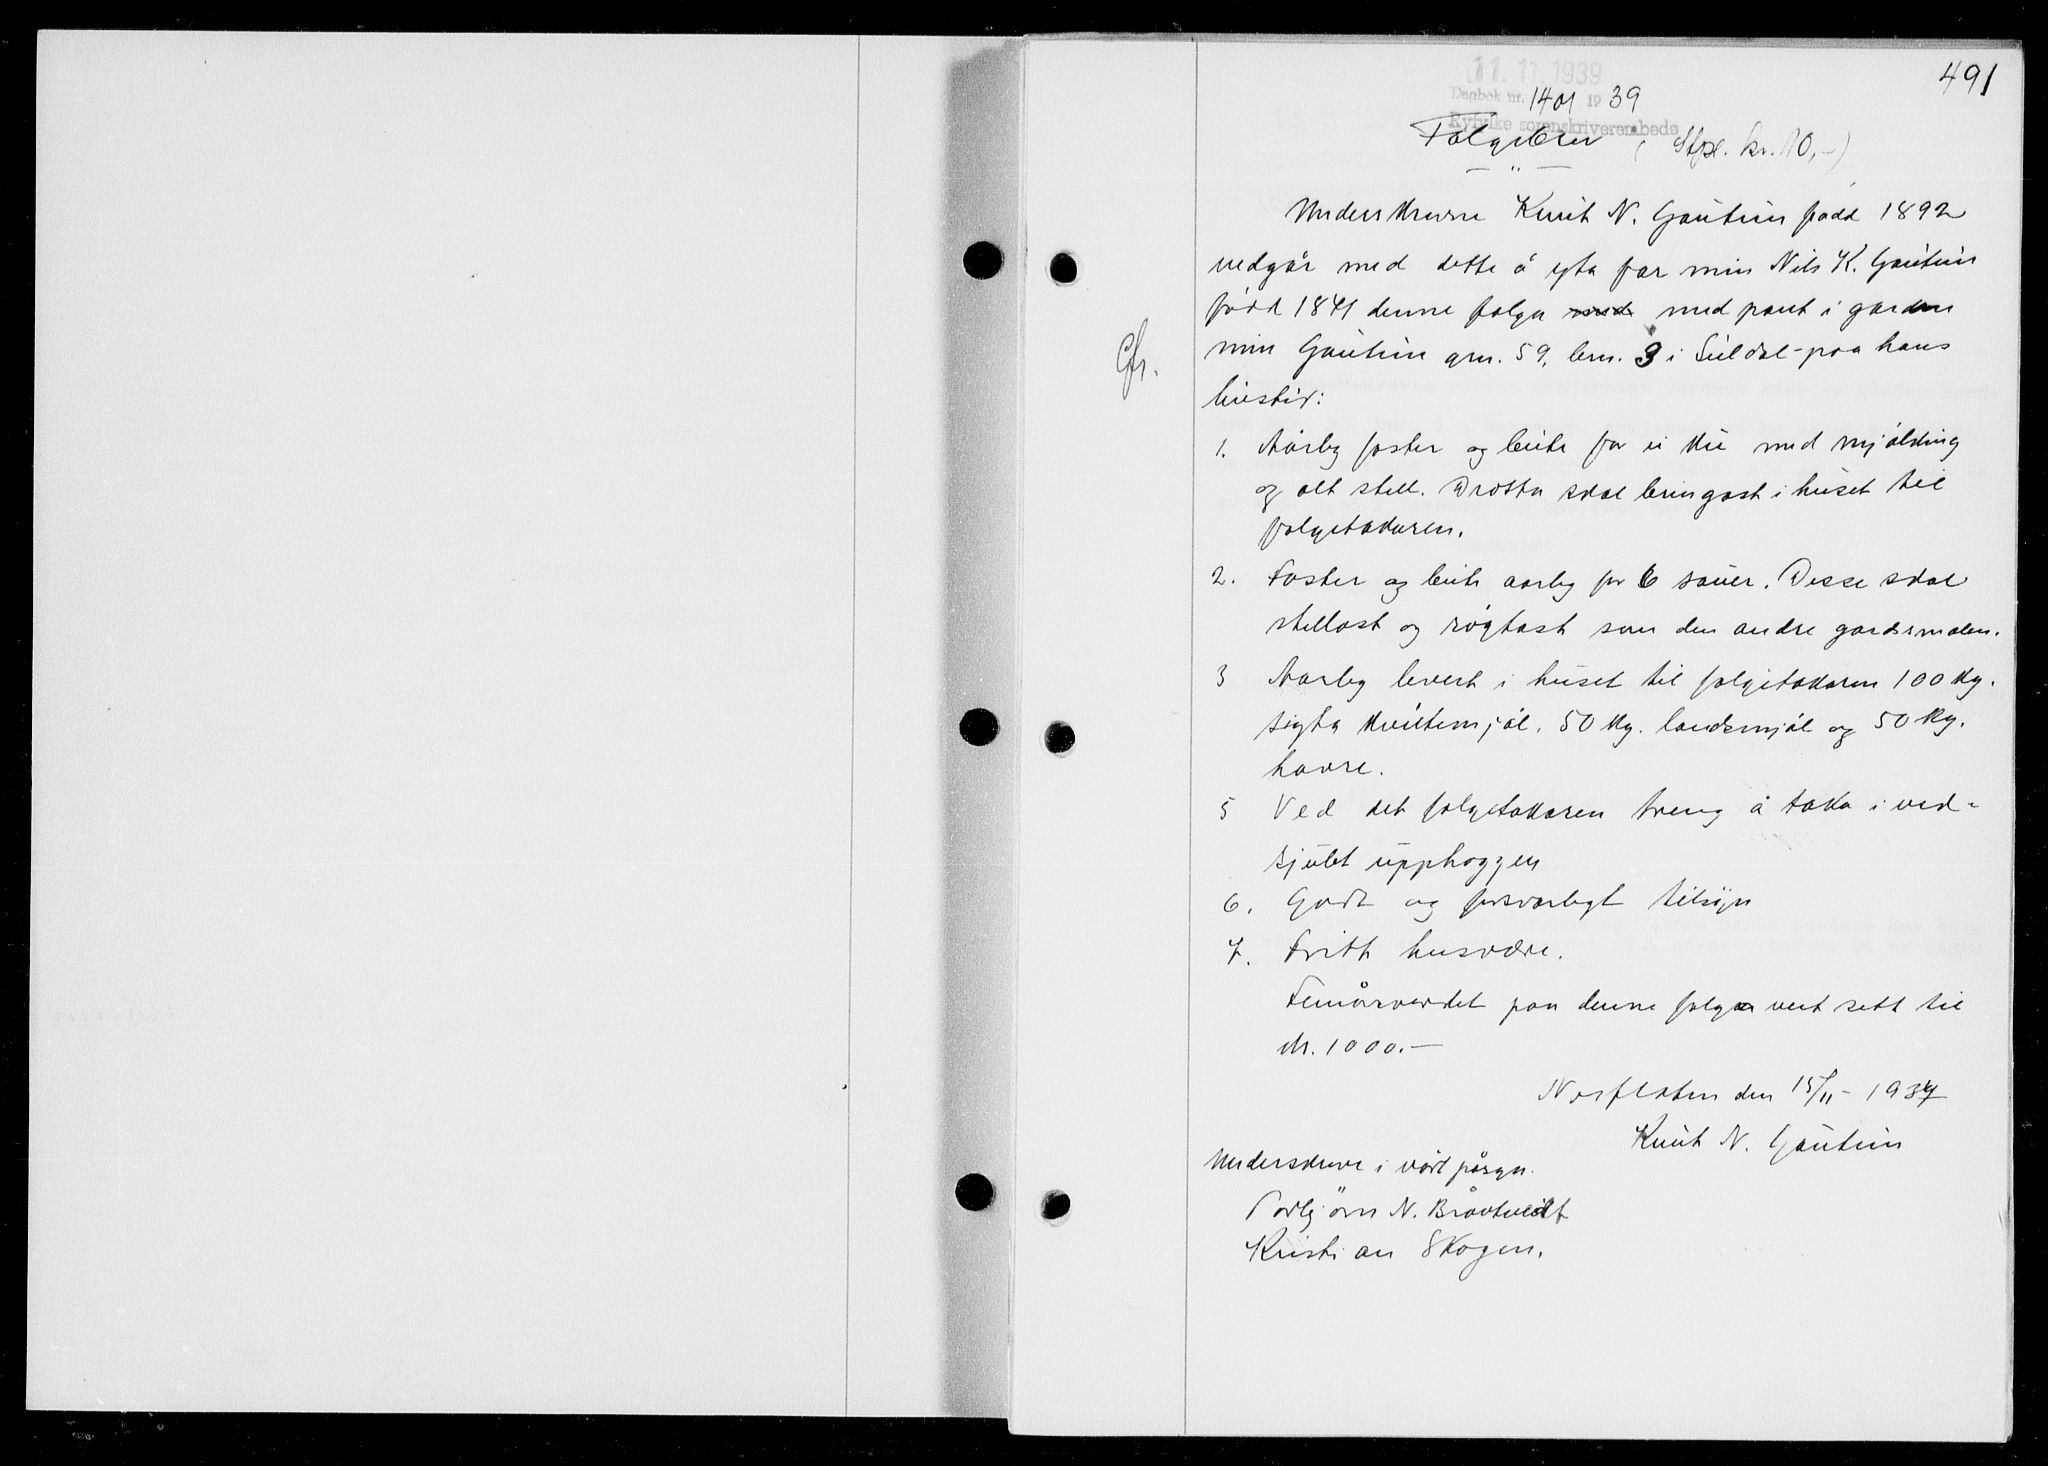 491
11.11.1939
Dagbok nr. 1401 19 39
Ryfylke sorenskriverembede
Folgebrev (Stpl. kr. 10,-)
Underskrevne Knut N. Gautun född 1892
vedgår med dette å yta far min Nils K. Gautun
född 1841 denne folga med med pant i garden
min Gautun grn. 59, brn. 3 i Suldal - paa hans
livstid:
Gfr.
1. Aarleg foster og beite for ei ku med mjólking
og alt stell. Drotten skal bringast i huset til
folgetakaren.
2. Foster og beite aarleg for 6 sauer. Desse skal
stellast og rögtast som den andre gardsmalen.
3 Aarleg levert i huset til folgetakaren 100 kg.
sigta kveitemjöl, 50 kg. landsmjöl og 50 kg.
havre.
5 Ved det folgetakaren treng å taka i ved-
sjulet upphoggen
6. Godt og forsvarlegt tilsyn
7. Fritt husvære.
Femårsverdet paa denne folga vert sett til
kr. 1000.-
Norflaten den 15/11 - 1937
Knut N. Gautun
Underskreve i vårt påsyn.
Torbjörn N. Bråvtveidt
Kristian Skogen.